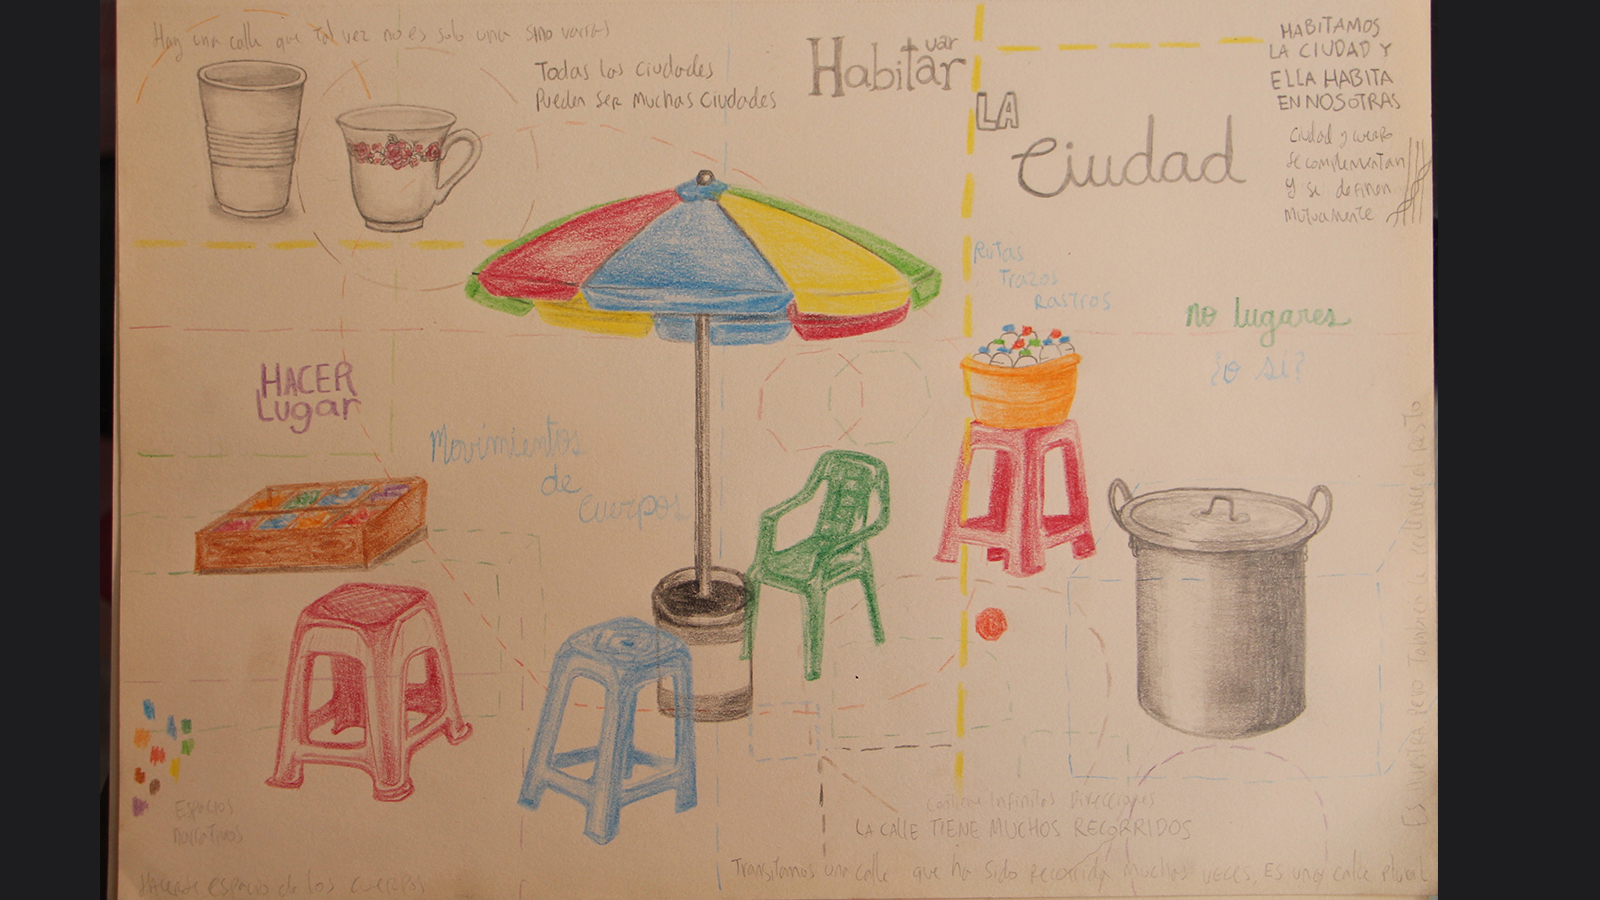 Hay una calle que tal vez no es solo una sino varias
Todas las ciudades
Pueden ser muchas ciudades
Habitar
uar
LA
Ciudad
HABITAMOS
LA CIUDAD Y
ELLA HABITA
EN NOSOTRAS
Ciudad y cuerpo
se complementan
y se definen
mutuamente
Rutas
Trazos
Rastros
no lugares
¿o si?
HACER
Lugar
Movimientos
de
cuerpos
Espacios
narrativos
Hacerse espacio de los cuerpos
Contiene infinitas direcciones
LA CALLE TIENE MUCHOS RECORRIDOS
Transitamos una calle que ha sido recorrida muchas veces, Es una calle plural
Es nuestra pero también le el resto